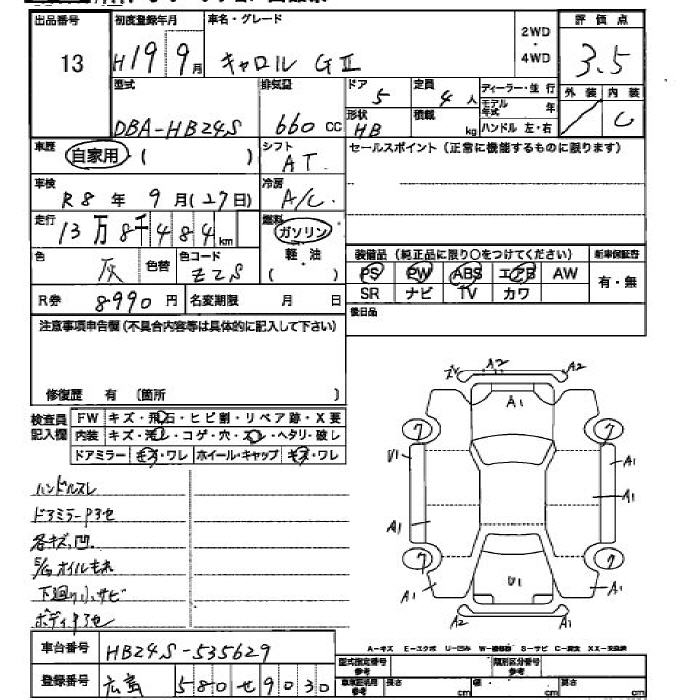 出品番号 初度登録年月 車名・グレード 2WD・4WD 評価点
13 H19 9月 キャロル GⅡ 3.5
型式 排気量 ドア 定員 ディーラー・並行 外装 内装
DBA-HB24S 660cc 5 4人 モデル年式 年 C
形状 積載 ハンドル 左・右
HB kg
車歴 自家用 ( ) シフト セールスポイント (正常に機能するものに限ります)
AT
車検 冷房
R8年 9月(27日) A/C
走行 燃料
13万8千484km ガソリン
装備品 (純正品に限り○をつけてください) 新車保証書
色 色替 色コード 軽・油
灰 Z2S ( )
PS PW ABS エアB AW 有・無
SR ナビ TV カワ
R券 8990円 名変期限 月 日
後日品
注意事項申告欄 (不具合内容等は具体的に記入して下さい)
修復歴 有 〔箇所 〕
検査員記入欄
FW キズ・飛石・ヒビ割・リペア跡・X要
内装 キズ・汚レ・コゲ・穴・スレ・ヘタリ・破レ
ドアミラー キズ・ワレ ホイール・キャップ キズ・ワレ
ハンドルスレ
ドアミラーアセ
各キズ、凹
オイルモレ
下廻り小サビ
ボディアセ
A2 A2
A1
7 7
U1 A1
A1 A1
7 7
A1 U1 A1
A2 A2
A-キズ E-エクボ U-凹み W-補修跡 S-サビ C-腐食 XX-交換済
車台番号 HB24S-535629
登録番号 広島 580 せ 9030
型式指定番号 参考 類別区分番号 参考
長さ cm 幅 cm 高さ cm